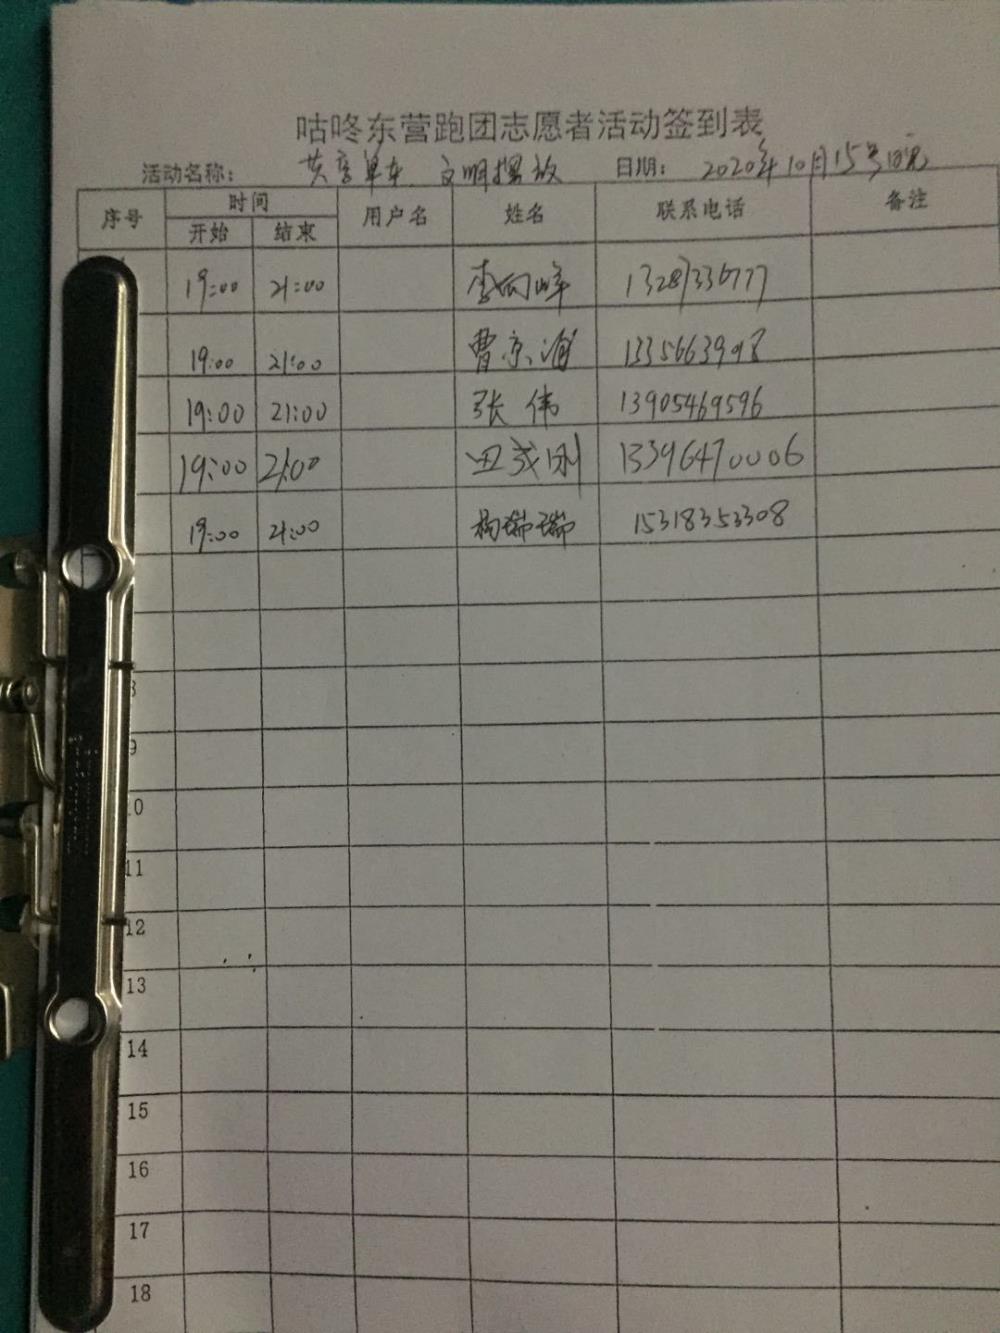 咕咚东营跑团志愿者活动签到表
活动名称： 共享单车 文明摆放 日期： 2020年10月15号
序号 时间 用户名 姓名 联系电话 备注
开始 结束
19:00 21:00 李向峰 13287336777
19:00 21:00 曹京
19:00 21:00 张伟 13905469596
19:00 21:00 13396470006
19:00 21:00 杨瑞瑞 15318353308
8
9
10
11
12
13
14
15
16
17
18